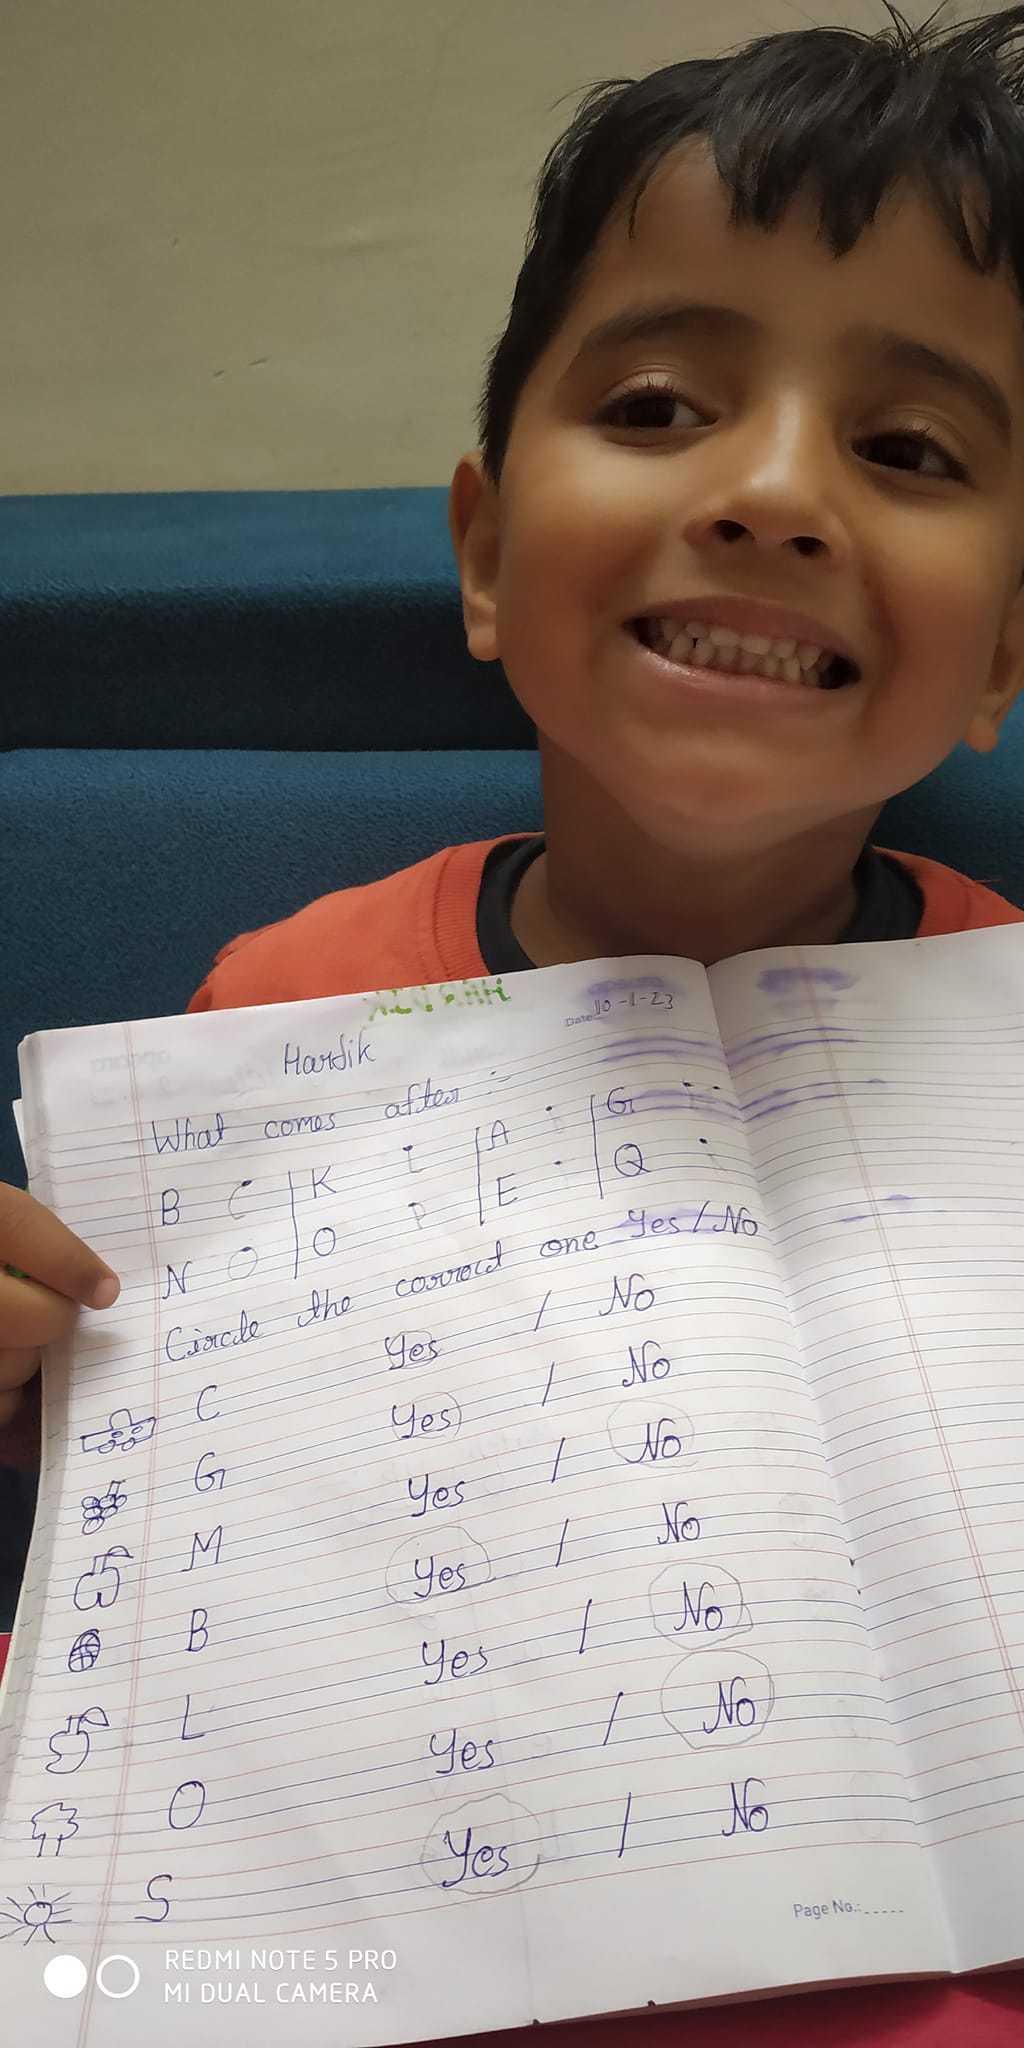 Hardik
Date 10-1-23
What comes after :-
B C | K L | A | G
N O | O P | E | Q
Circle the correct one Yes / No
C Yes / No
G Yes / No
M Yes / No
B Yes / No
L Yes / No
O Yes / No
S Yes / No
Page No.:-----
REDMI NOTE 5 PRO
MI DUAL CAMERA